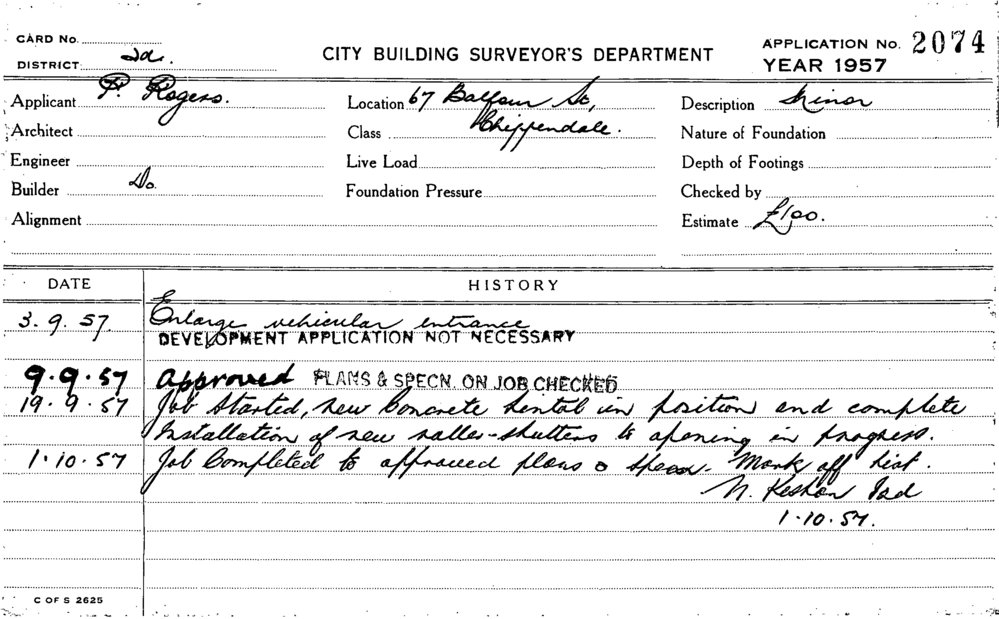 CARD No.
DISTRICT 2d.
CITY BUILDING SURVEYOR'S DEPARTMENT
APPLICATION No. 2074
YEAR 1957
Applicant P. Rogers.
Location 67 Balfour St,
Chippendale.
Description Minor
Architect
Class
Nature of Foundation
Engineer
Live Load
Depth of Footings
Builder Do.
Foundation Pressure
Checked by
Alignment
Estimate £100.
DATE HISTORY
3.9.57 Enlarge vehicular entrance
DEVELOPMENT APPLICATION NOT NECESSARY
9.9.57 Approved PLANS & SPECN. ON JOB CHECKED
19.9.57 Job Started, new Concrete lintol in position and complete
Installation of new roller-shutters to opening in progress.
1.10.57 Job Completed to approved plans & specn. Mark off list.
N.
1.10.57.
C OF S 2625